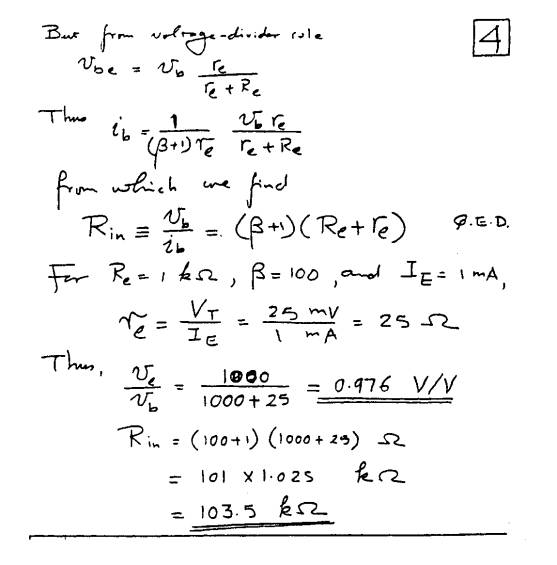 But from voltage-divider rule
4
v_be = v_b r_e / (r_e + R_e)
Thus i_b = 1 / ((β+1) r_e) v_b r_e / (r_e + R_e)
from which we find
R_in ≡ v_b / i_b = (β+1)(R_e + r_e) Q.E.D.
For R_e = 1 kΩ, β = 100, and I_E = 1 mA,
r_e = V_T / I_E = 25 mV / 1 mA = 25 Ω
Thus, v_e / v_b = 1000 / (1000 + 25) = 0.976 V/V
R_in = (100+1) (1000 + 25) Ω
= 101 × 1.025 kΩ
= 103.5 kΩ